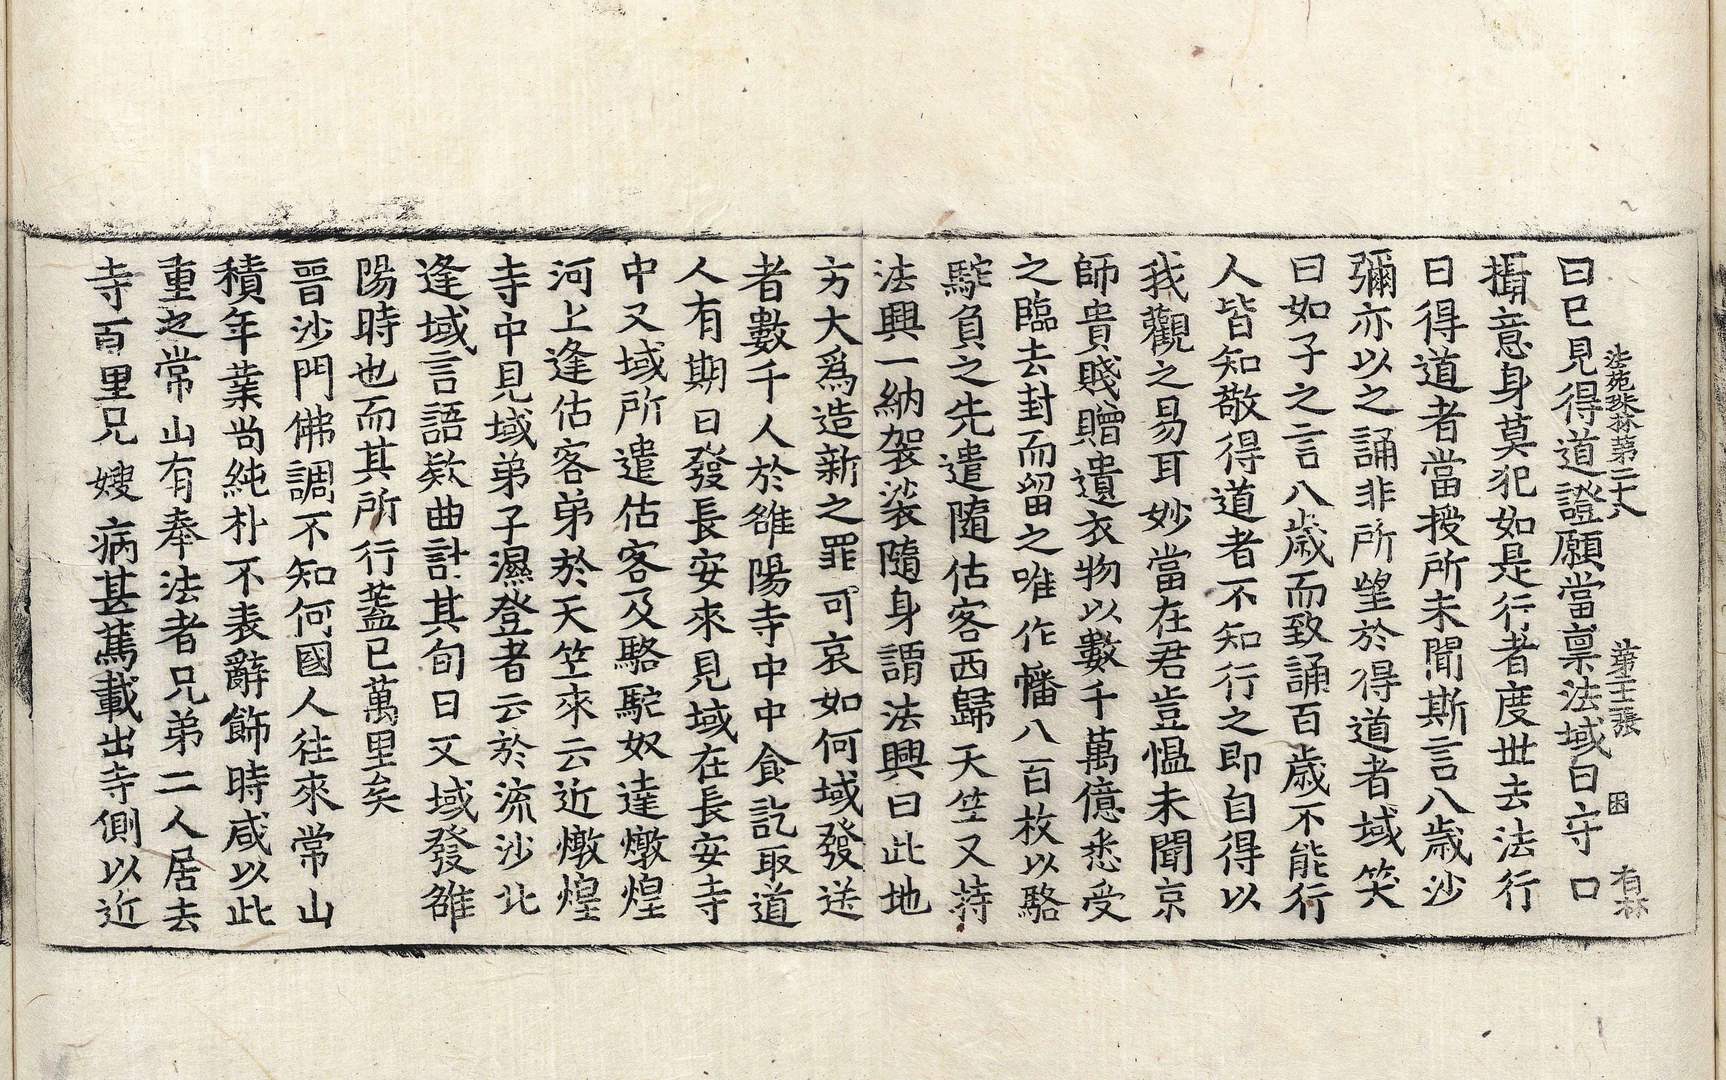 曰已見得道證願當稟法域曰守口
攝意身莫犯如是行者度世去法行
曰得道者當授所未聞斯言八歲沙
彌亦以之誦非所望於得道者域笑
曰如子之言八歲而致誦百歲不能行
人皆知敬得道者不知行之即自得以
我觀之易耳妙當在君豈慍未聞京
師貴賤贈遺衣物以數千萬億悉受
之臨去封而留之唯作幡八百枚以駱
駝負之先遣隨估客西歸天竺又持
法興一納袈裟隨身謂法興曰此地
方大爲造新之罪可哀如何域發送
者數千人於雒陽寺中中食訖取道
人有期日發長安來見域在長安寺
中又域所遣估客及駱駝奴達燉煌
河上逢估客弟於天竺來云近燉煌
寺中見域弟子濕登者云於流沙北
逢域言語欵曲計其旬日又域發雒
陽時也而其所行蓋已萬里矣
晉沙門佛調不知何國人往來常山
積年業尚純朴不表辭飾時咸以此
重之常山有奉法者兄弟二人居去
寺百里兄嫂病甚篤載出寺側以近
法苑珠林第二十八
第十二張
因
有林